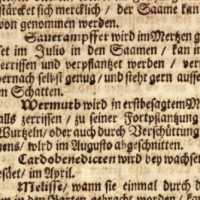 stärcket sich mercklich / der Saame kan
von genommen werden.
Sauerampffer wird im Mertzen g
set im Julio in den Saamen / kan i
zerriffen und verpflantzet werden / ver
hernach selbst genug / und stehet gern auff
m Schatten.
Wermuth wird in erstbesagtem M
alls zerriffen / zu seiner Fortpflantzung
Wurtzeln / oder auch durch Verschüttung
ens / wird im Augusto abgeschnitten.
Cardobenedicten wird bey wachse
eet / im April.
Melisse / wann sie einmal durch d
in den Garten gebracht worden / kan